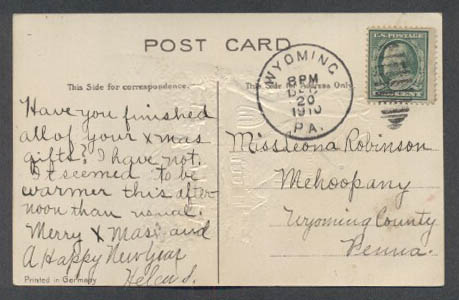 POST CARD
This Side for correspondence.
This Side for Address Only
U.S. POSTAGE
WYOMING
8 PM
DEC
20
1910
PA.
Have you finished
all of your xmas
gifts? I have not.
It seemed to be
warmer this after-
noon than usual.
Merry Xmas and
A Happy New Year
Helen S.
Miss Leona Robinson
Mehoopany
Wyoming County
Penna.
Printed in Germany